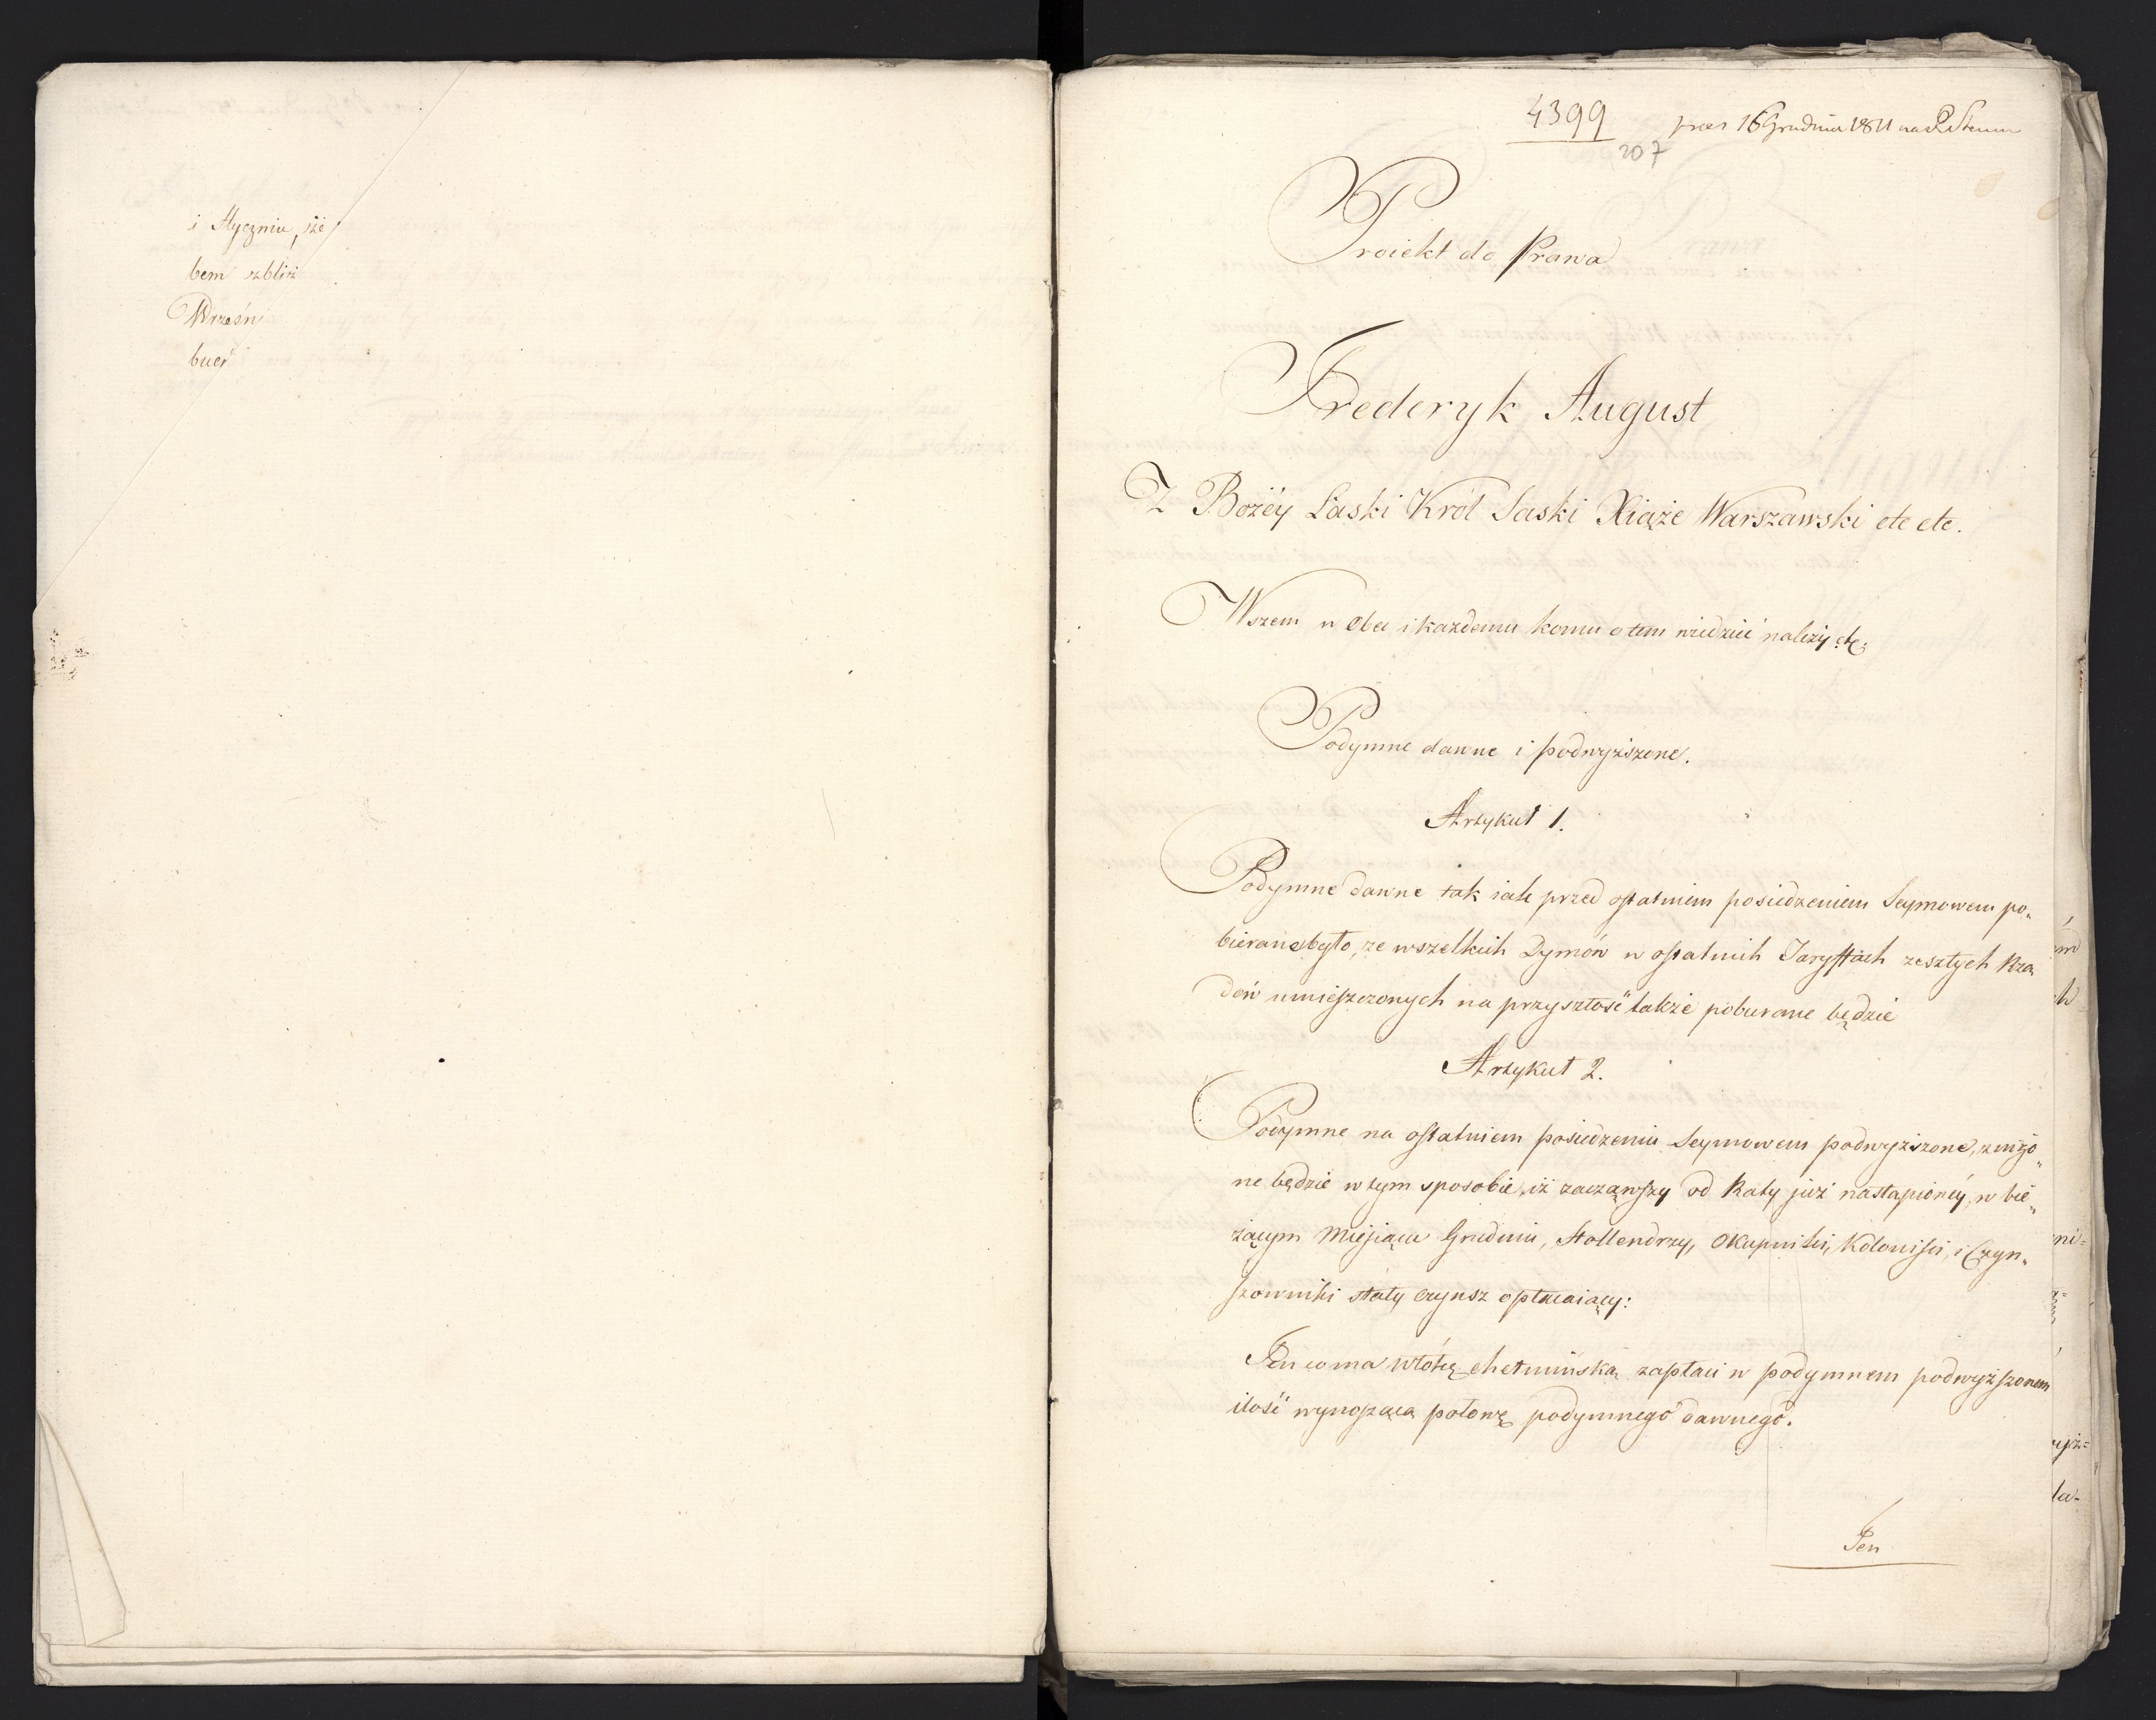 i Styczniu, że
bem zbliż
Wrześn
buer
4399
16 Grudnia 1811
207
Proiekt do Prawa
Frederyk August
Z Bożéy Łaski Król Saski Xiąże Warszawski etc etc.
Wszem w Obec i każdemu komu o tem wiedzieć należy etc:
Podymne dawne i podwyższone.
Artykuł 1.
Podymne dawne tak iak przed ostatniem posiedzeniem Seymowem po„
bierane było, ze wszelkich Dymów w ostatnich Taryffach zeszłych Rzą
dów umieszczonych na przyszłość także pobierane będzie
Artykuł 2.
Podymne na ostatniem posiedzeniu Seymowem podwyższone, zniżo„
ne będzie w tym sposobie, iż zacząwszy od Raty już nastąpionéy w bie„
żącym Miesiącu Grudniu, Hollendrzy, Okupniki, Kolonisci, i Czyn„
szowniki stały czynsz opłacaiący:
Ten co ma Włókę chełmińską zapłaci w podymnem podwyższonem
ilość wynoszącą połowę podymnego dawnego.
Ten